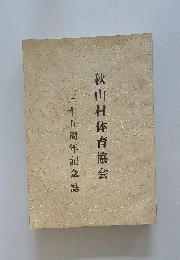 秋山村体育協会
三十五周年記念誌